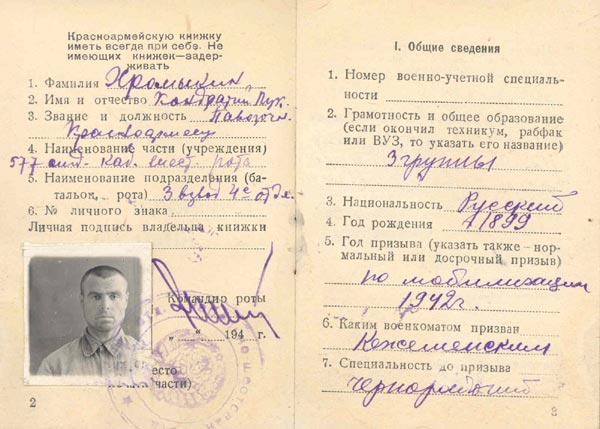 Красноармейскую книжку
иметь всегда при себе. Не
имеющих книжек—задер-
живать
1. Фамилия Хромыкин
2. Имя и отчество Кондратий Лук.
3. Звание и должность
Красноармеец
4. Наименование части (учреждения)
577 рота
5. Наименование подразделения (ба-
тальон, рота) 3 взвод 4е отд.
6. № личного знака
Личная подпись владельца книжки
Командир роты
„ “ 194 г.
место
(части)
2
I. Общие сведения
1. Номер военно-учетной специаль-
ности
2. Грамотность и общее образование
(если окончил техникум, рабфак
или ВУЗ, то указать его название)
3 группы
3. Национальность Русский
4. Год рождения 1899
5. Год призыва (указать также—нор-
мальный или досрочный призыв)
по мобилизации
1942г.
6. Каким военкоматом призван
7. Специальность до призыва
Чернорабочий
3